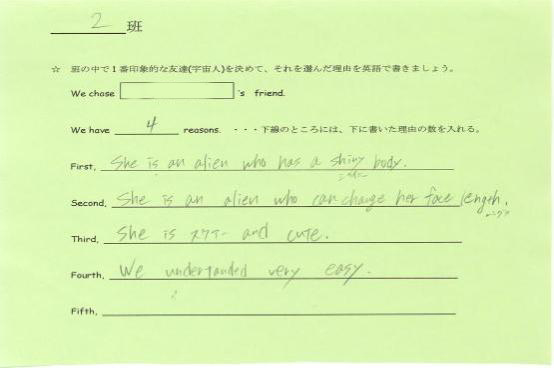 2 班
☆ 班の中で1番印象的な友達(宇宙人)を決めて、それを選んだ理由を英語で書きましょう。
We chose 's friend.
We have 4 reasons. ・・・下線のところには、下に書いた理由の数を入れる。
First, She is an alien who has a shiny body.
Second, She is an alien who can change her face length.
Third, She is and cute.
Fourth, We undertanded very easy.
Fifth,